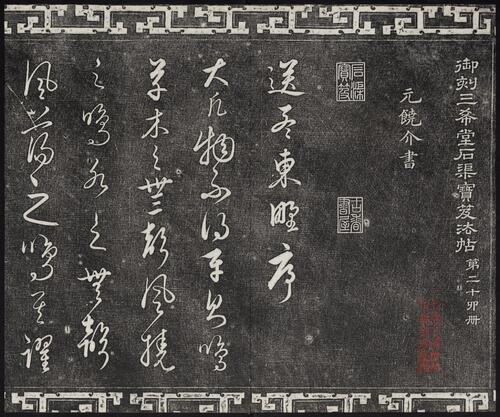 御刻三希堂石渠寶笈法帖 第二十四册
元饒介書
石渠寶笈
送孟東野序
大凡物不得平則鳴
草木之無聲風撓
之鳴水之無聲
風蕩之鳴其躍